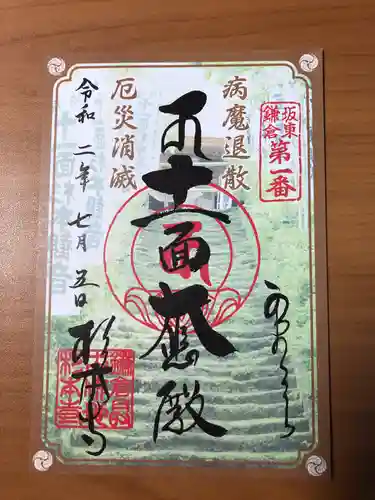 病魔退散
坂東
鎌倉
第一番
十一面大悲殿
厄災消滅
令和二年七月五日
杉本寺